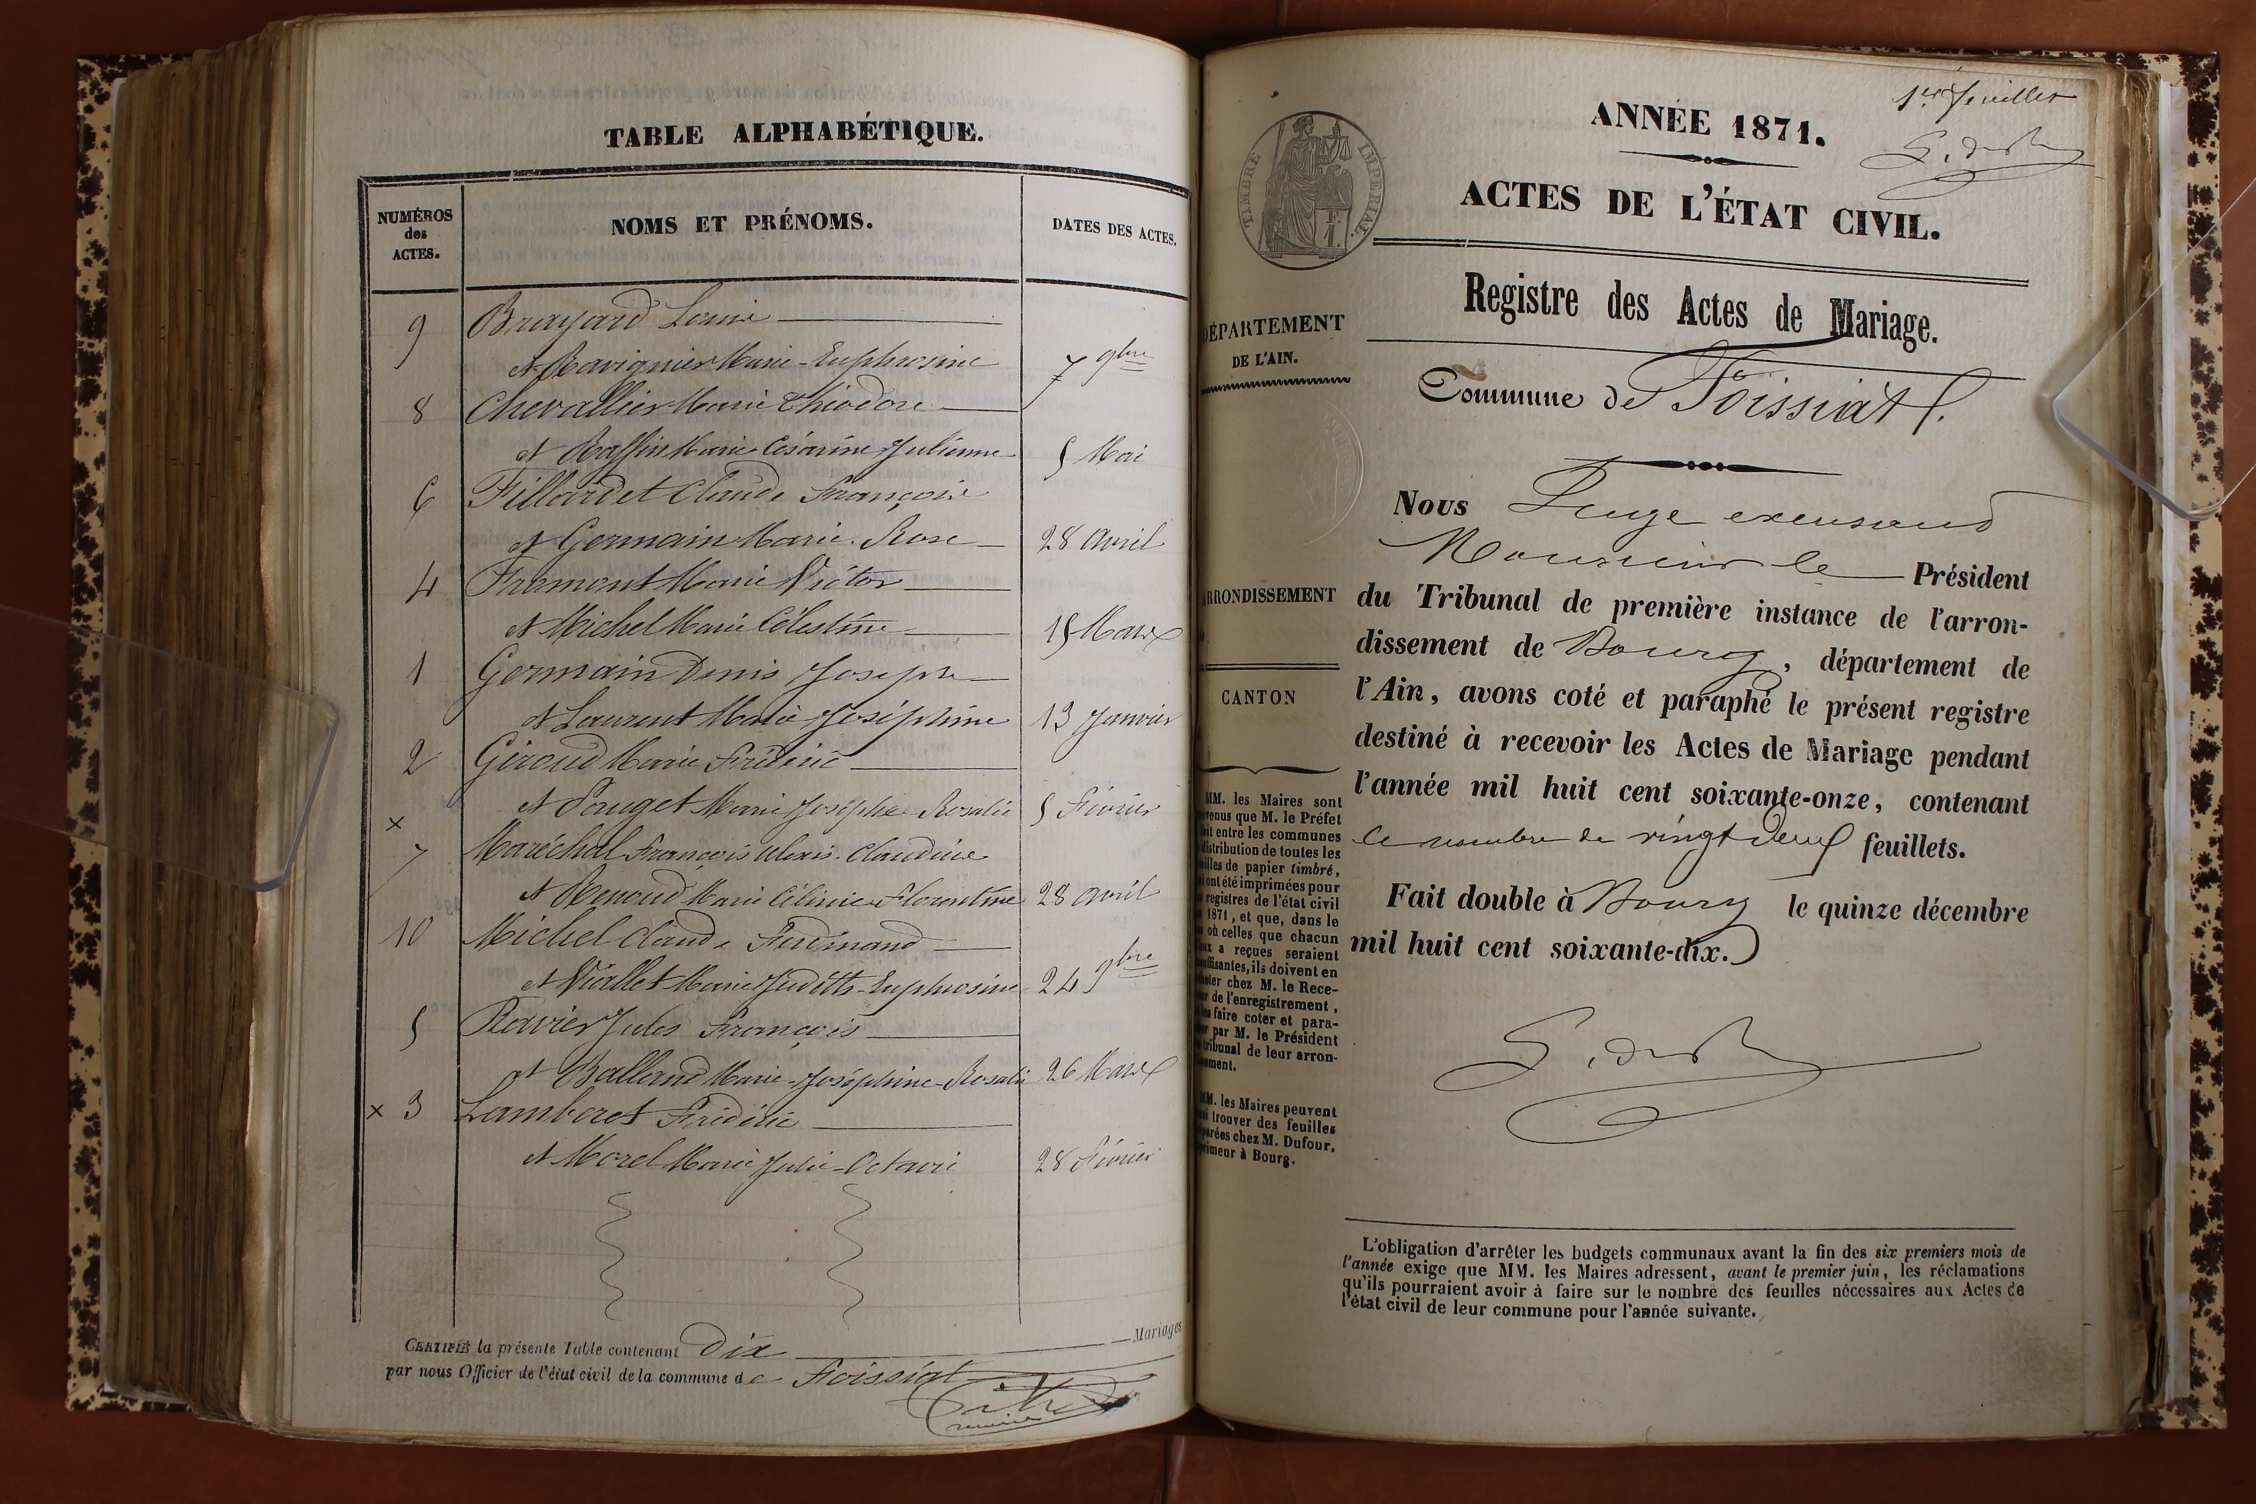 TABLE ALPHABÉTIQUE.
NUMÉROS
des
ACTES.
NOMS ET PRÉNOMS.
DATES DES ACTES.
9 Brayard Louis
et Ravignier Marie-Euphrosine 7 9bre
8 Chevallier Marie Théodore
et Raffin Marie Césarine Julienne 5 Mai
6 Fillardet Claude François
et Germain Marie Rose 28 avril
4 Fromont Marie Victor
et Michel Marie Célestine 15 Mars
1 Germain Denis Joseph
et Laurent Marie Joséphine 13 Janvier
2 Giroud Marie Frédéric
et Pauget Marie Josèphe Rosalie 5 Février
x
7 Maréchal François Alexis Claudius
et Renoud Marie Célinie Florentine 28 avril
10 Michel Claude Ferdinand
et Viallet Marie Judith-Euphrosine 24 9bre
5 Ravier Jules François
et Balland Marie-Joséphine-Rosalie 26 Mars
x 3 Lamberet Frédéric
et Morel Marie Julie-Octavie 28 Février
CERTIFIÉ la présente Table contenant Dix Mariages
par nous Officier de l'état civil de la commune de Foissiat
1er feuillet
ANNÉE 1871.
TIMBRE IMPÉRIAL.
1 F.
ACTES DE L'ÉTAT CIVIL.
Registre des Actes de Mariage.
DÉPARTEMENT
DE L'AIN.
Commune de Foissiat.
Nous Juge excusant
Monsieur le Président
ARRONDISSEMENT
du Tribunal de première instance de l'arron-
dissement de Bourg, département de
CANTON
l'Ain, avons coté et paraphé le présent registre
destiné à recevoir les Actes de Mariage pendant
l'année mil huit cent soixante-onze, contenant
le nombre de vingt deux feuillets.
Fait double à Bourg le quinze décembre
mil huit cent soixante-dix.
MM. les Maires sont
venus que M. le Préfet
it entre les communes
distribution de toutes les
illes de papier timbré,
ont été imprimées pour
registres de l'état civil
1871, et que, dans le
où celles que chacun
ux a reçues seraient
uffisantes, ils doivent en
eter chez M. le Rece-
r de l'enregistrement,
faire coter et para-
r par M. le Président
tribunal de leur arron-
ement.
MM. les Maires peuvent
si trouver des feuilles
parées chez M. Dufour,
rimeur à Bourg.
L'obligation d'arrêter les budgets communaux avant la fin des six premiers mois de
l'année exige que MM. les Maires adressent, avant le premier juin, les réclamations
qu'ils pourraient avoir à faire sur le nombre des feuilles nécessaires aux Actes de
l'état civil de leur commune pour l'année suivante.